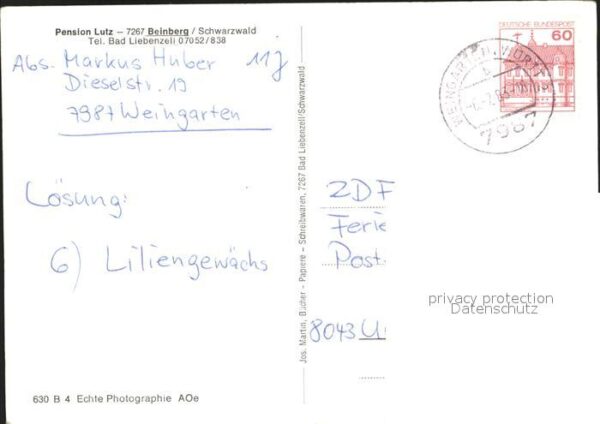 Pension Lutz – 7267 Beinberg / Schwarzwald
Tel. Bad Liebenzell 07052/838
Abs. Markus Huber 11J
Dieselstr. 19
7987 Weingarten
Lösung:
6) Liliengewächs
630 B 4 Echte Photographie AOe
Jos. Martin, Bücher - Papiere - Schreibwaren, 7267 Bad Liebenzell/Schwarzwald
DEUTSCHE BUNDESPOST
60
WEINGART WÜRTT
b
7987
ZDF
Ferie
Post
8043 U
privacy protection
Datenschutz